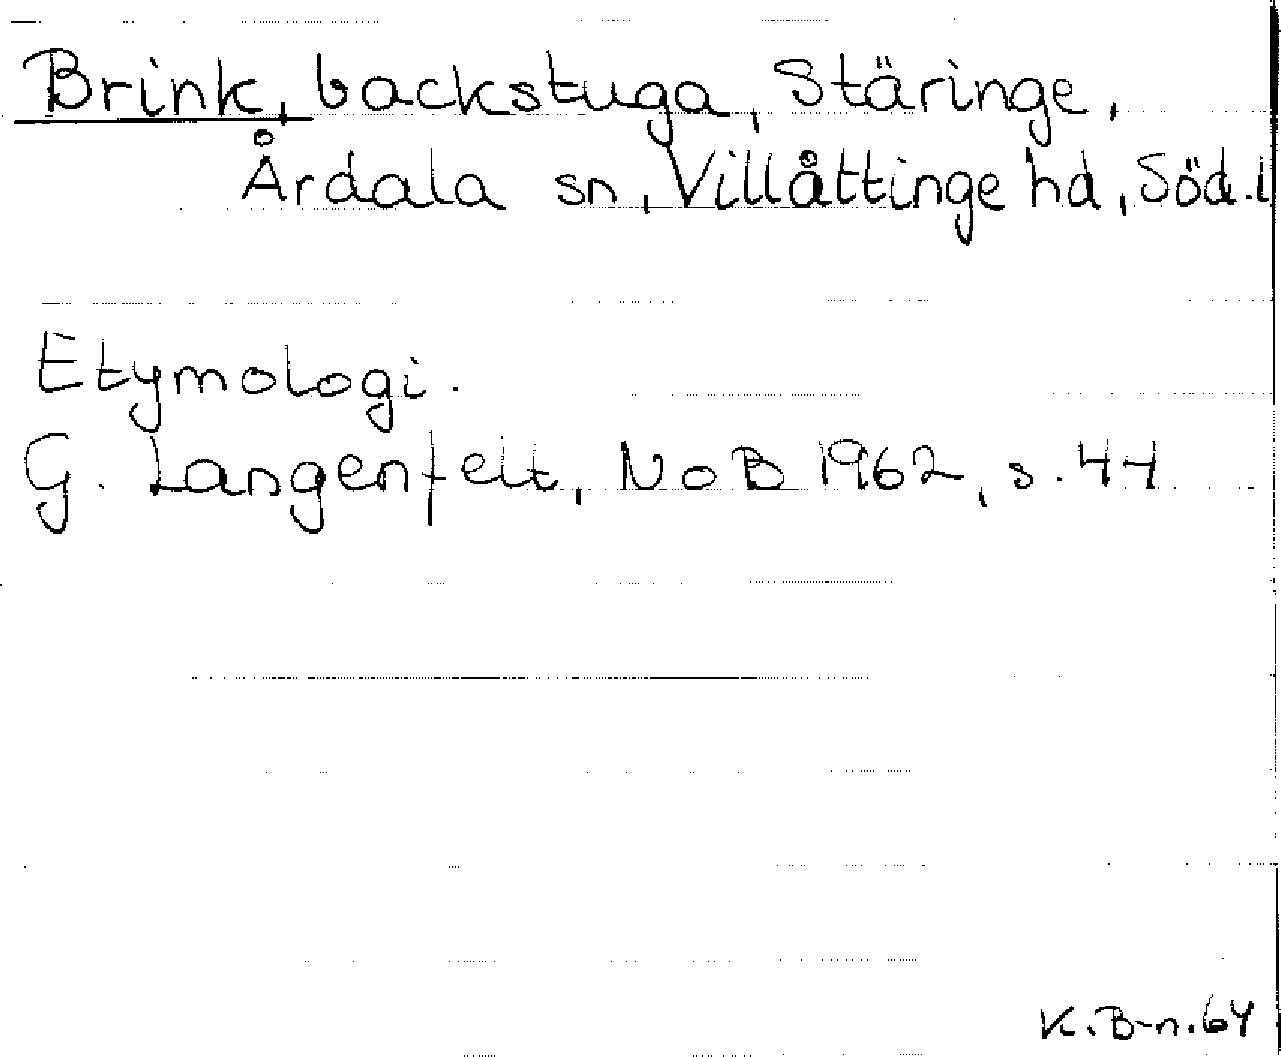 Brink, backstuga, Stäringe,
Årdala sn, Villåttinge hd, Söd.l
Etymologi.
G. Langenfelt, NoB 1962, s. 44
K.B-n.64